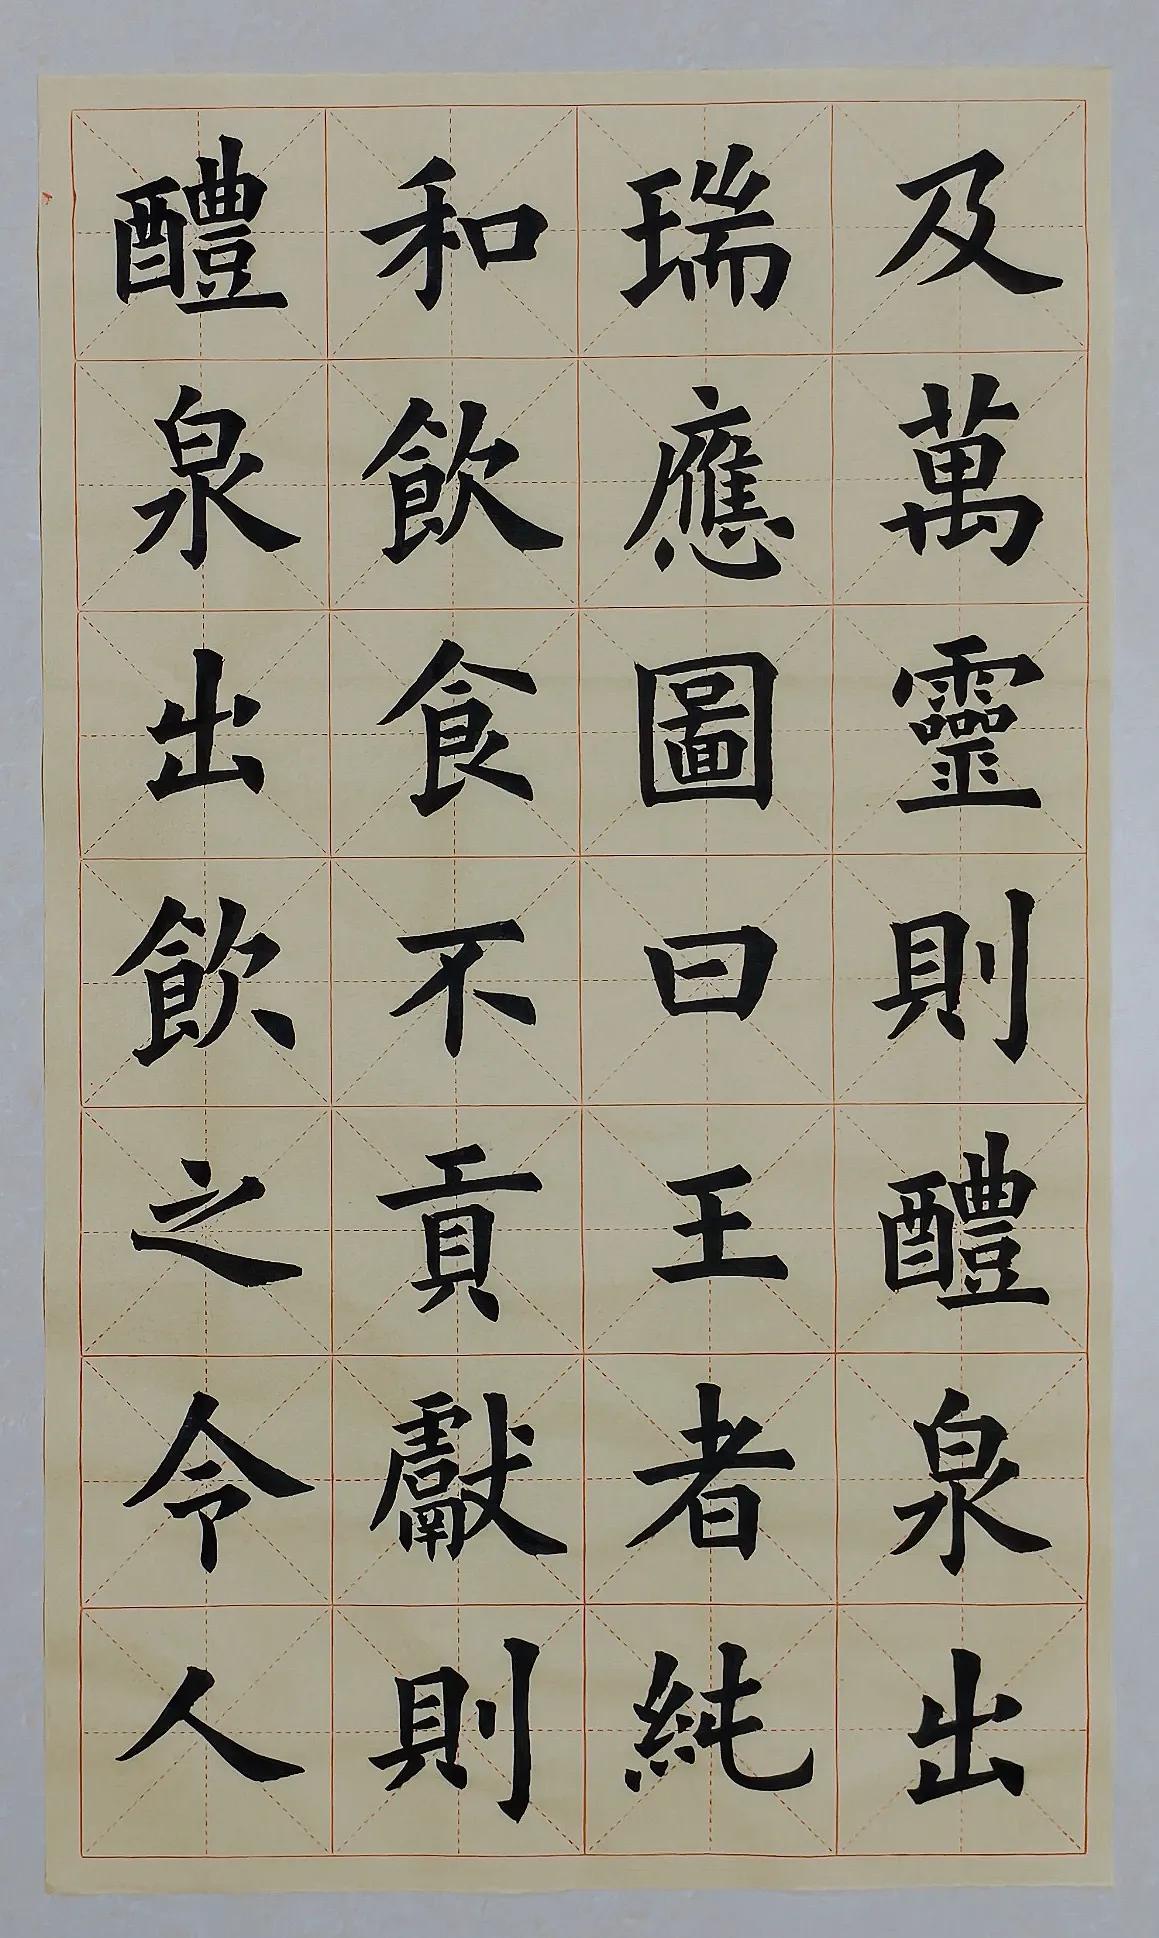 及萬靈則醴泉出
瑞應圖曰王者純
和飲食不貢獻則
醴泉出飲之令人